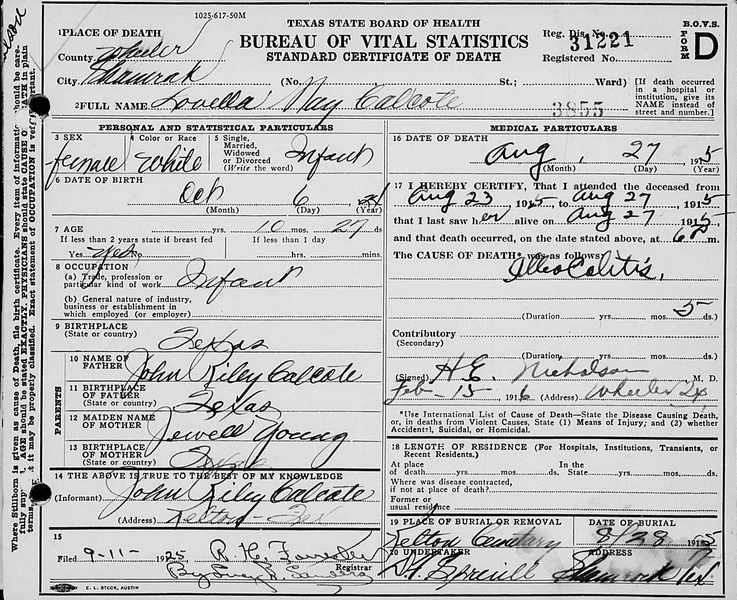 1025-617-50M
TEXAS STATE BOARD OF HEALTH
BUREAU OF VITAL STATISTICS
STANDARD CERTIFICATE OF DEATH
Reg. Dis. No. 31221
Registered No.
B.O.V.S.
FORM D
1 PLACE OF DEATH
County Wheeler
City Shamrok (No. St.; Ward)
[If death occurred in a hospital or institution, give its NAME instead of street and number.]
2 FULL NAME Lovella May Calcote 3855
PERSONAL AND STATISTICAL PARTICULARS
3 SEX female
4 Color or Race White
5 Single, Married, Widowed or Divorced (Write the word) Infant
6 DATE OF BIRTH
Oct 6
(Month) (Day) (Year)
7 AGE yrs. 10 mos. 27 ds
If less than 2 years state if breast fed
Yes yes No
If less than 1 day
hrs. min.
8 OCCUPATION
(a) Trade, profession or particular kind of work Infant
(b) General nature of industry, business or establishment in which employed (or employer)
9 BIRTHPLACE
(State or country) Texas
PARENTS
10 NAME OF FATHER John Riley Calcote
11 BIRTHPLACE OF FATHER
(State or country) Texas
12 MAIDEN NAME OF MOTHER Jewell Young
13 BIRTHPLACE OF MOTHER
(State or country)
14 THE ABOVE IS TRUE TO THE BEST OF MY KNOWLEDGE
(Informant) John Riley Calcote
(Address) Kelton Tex
15
Filed 9-11- 1925 R. H. Forrester
Registrar
MEDICAL PARTICULARS
16 DATE OF DEATH
Aug, 27 1915
(Month) (Day) (Year)
17 I HEREBY CERTIFY, That I attended the deceased from
Aug 23 1915 to Aug 27 1915
that I last saw her alive on Aug 27 1915
and that death occurred, on the date stated above, at 6 P m.
The CAUSE OF DEATH* was as follows:
Illeo Colitis,
(Duration yrs. mos. 5 ds.)
Contributory
(Secondary)
(Duration yrs. mos. ds.)
(Signed) H.E. Nicholson M. D.
Feb-15- 1916 (Address) Wheeler Tx
*Use International List of Cause of Death—State the Disease Causing Death, or, in deaths from Violent Causes, State (1) Means of Injury; and (2) whether Accidentl, Suicidal, or Homicidal.
18 LENGTH OF RESIDENCE (For Hospitals, Institutions, Transients, or Recent Residents.)
At place of death yrs. mos. ds.
In the State yrs. mos. ds.
Where was disease contracted, if not at place of death?
Former or usual residence
19 PLACE OF BURIAL OR REMOVAL
Kelton Cemetary
DATE OF BURIAL
8/28 1915
20 UNDERTAKER
ADDRESS
Shamrock Tex
E. L. STECK, AUSTIN